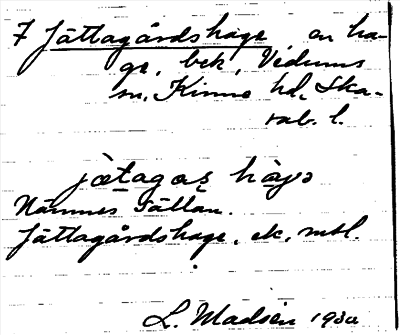 7 Jättagårdshage en ha-
ge, bek, Vedums
sn. Kinne hd. Ska-
rab. l.
jätagaṣ haɣə
Nämnes sällan.
Jättagårdshage, ek. mtl.
L. Madsén 1930